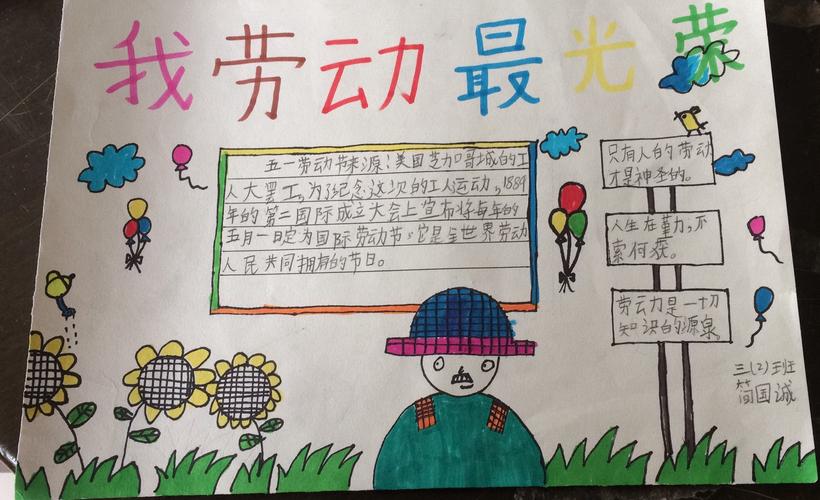 我劳动最光荣
五一劳动节来源：美国芝加哥城的工
人大罢工，为了纪念这次的工人运动，1889
年的第二国际成立大会上宣布将每年的
五月一日定为国际劳动节。它是全世界劳动
人民共同拥有的节日。
只有人的劳动
才是神圣的。
人生在勤，不
索何获。
劳动力是一切
知识的源泉
三（2）班
简国诚